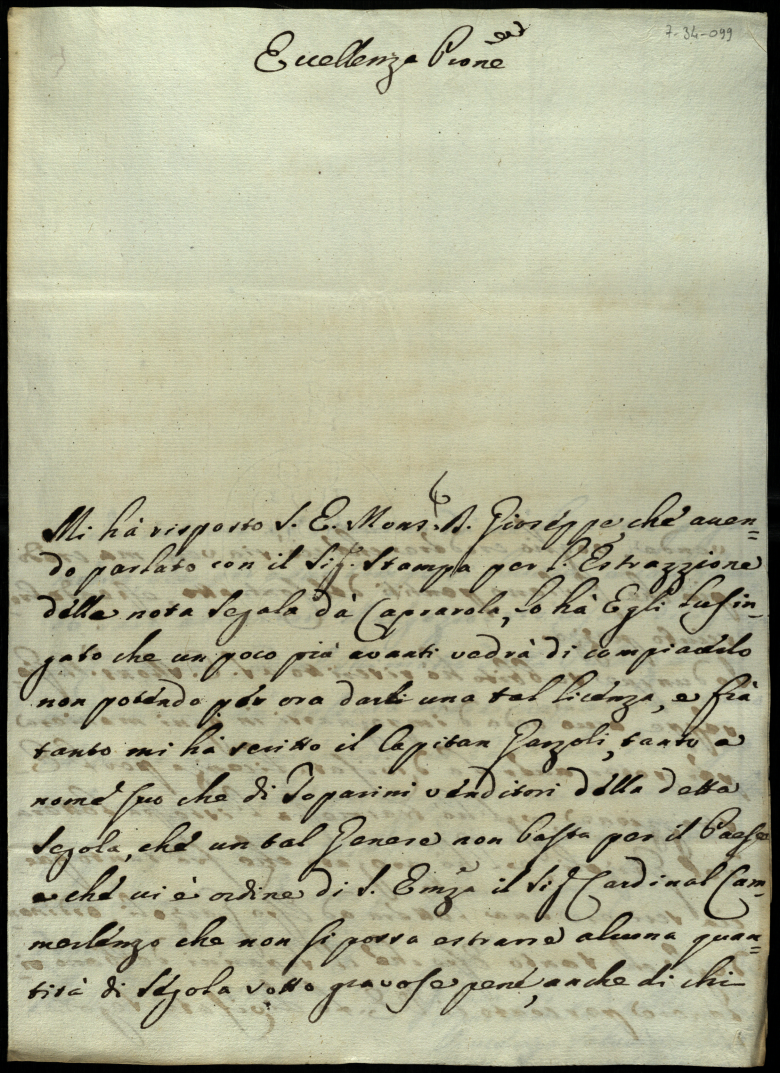 7-34-099
Eccellenza Prone
Mi hà risposto S. E. Mons.r D. Gioseppe, che aven=
do parlato con il Sig.r Stampa per l'Estrazzione
della nota Segala dà Caprarola, lo hà Egli lusin=
gato che un poco più avanti vedrà di compiacerlo
non potendo per ora darli una tal licenza, e frà
tanto mi hà scritto il Capitan Garzoli, tanto a
nome suo che di Toparini venditori della detta
Segola, che un tal Genere non basta per il Paese
e che vi è ordine di S. Emza il Sig.r Cardinal Cam=
merlengo che non si possa estrarre alcuna quan=
tità di Segola sotto gravose pene, anche di chi